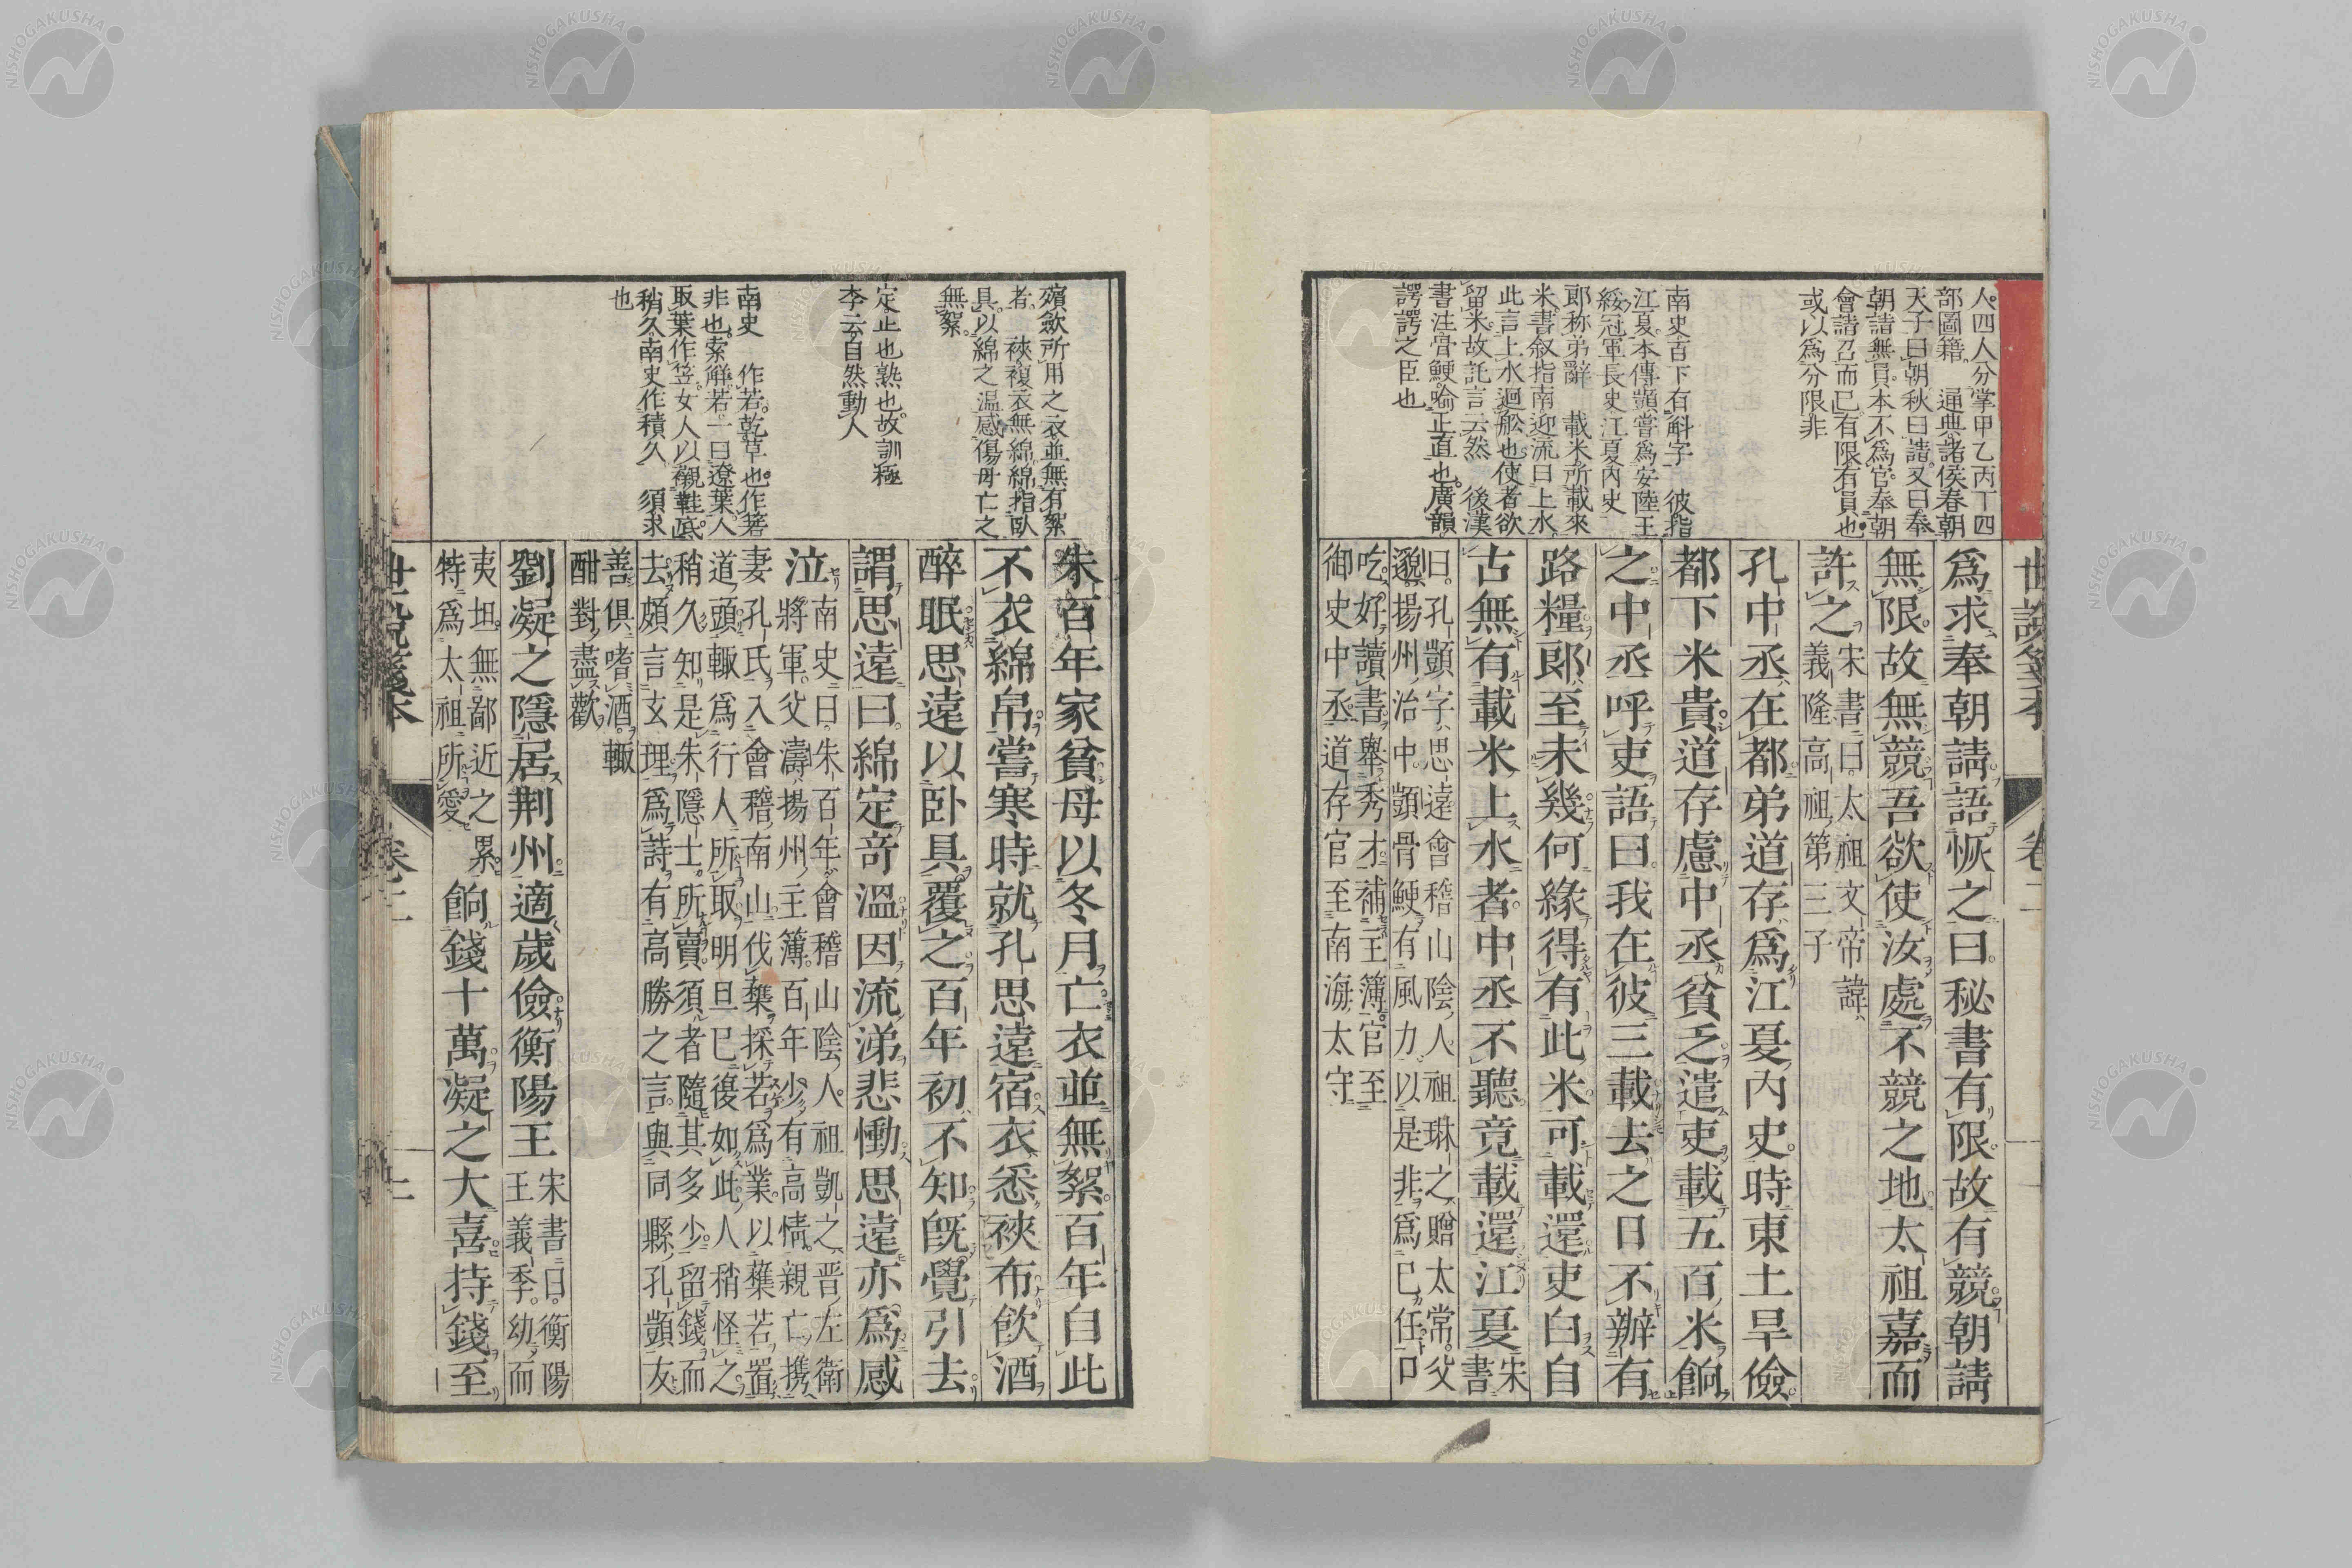 人四人分掌甲乙丙丁四
部圖籍 通典諸侯春朝
天子曰朝秋曰請又曰奉
朝請無員本不為官奉朝
會請召而已有限有員也
或以為分限非
南史百下有斛字 彼指
江夏本傳顗嘗為安陸王
綏冠軍長史江夏內史
郎称弟辭 載米所載來
米書叙指南迎流曰上水
此言上水迴舩也使者欲
留米故託言云然 後漢
書注骨鯁喩正直也廣韻
諤諤之臣也
為求奉朝請語恢之曰秘書有限故有競朝請
無限故無競吾欲使汝處不競之地太祖嘉而
許之宋書曰太祖文帝諱
義隆高祖第三子
孔中丞在都弟道存為江夏內史時東土旱儉
都下米貴道存慮中丞貧乏遣吏載五百米餉
之中丞呼吏語曰我在彼三載去之日不辦有
路糧郎至未幾何緣得有此米可載還吏白自
古無有載米上水者中丞不聽竟載還江夏宋
書
曰孔顗字思遠會稽山陰人祖琳之贈太常父
邈揚州治中顗骨鯁有風力以是非為已任口
吃好讀書舉秀才補主簿官至
御史中丞道存官至南海太守
殯歛所用之衣並無有絮
者 裌複衣無綿綿指臥
具以綿之温感傷母亡之
無絮
定止也熟也故訓極
李云自然動人
南史 作若乾草也作箬
非也索觧若一曰遼葉人
取葉作笠女人以襯鞋底
稍久南史作積久 須求
也
朱百年家貧母以冬月亡衣並無絮百年自此
不衣綿帛嘗寒時就孔思遠宿衣悉裌布飲酒
醉眠思遠以卧具覆之百年初不知旣覺引去
謂思遠曰綿定竒溫因流涕悲慟思遠亦為感
泣南史曰朱百年會稽山陰人祖凱之晋左衛
將軍父濤揚州主簿百年少有高情親亡携
妻孔氏入會稽南山伐樵採若為業以樵若置
道頭輙為行人所取明旦已復如此人稍怪之
稍久知是朱隱士所賣須者隨其多少留錢而
去頗言玄理為詩有高勝之言與同縣孔顗友
善俱嗜酒輙
酣對盡歡
劉凝之隱居荆州適歲儉衡陽王宋書曰衡陽
王義季幼而
夷坦無鄙近之累
特為太祖所愛餉錢十萬凝之大喜持錢至